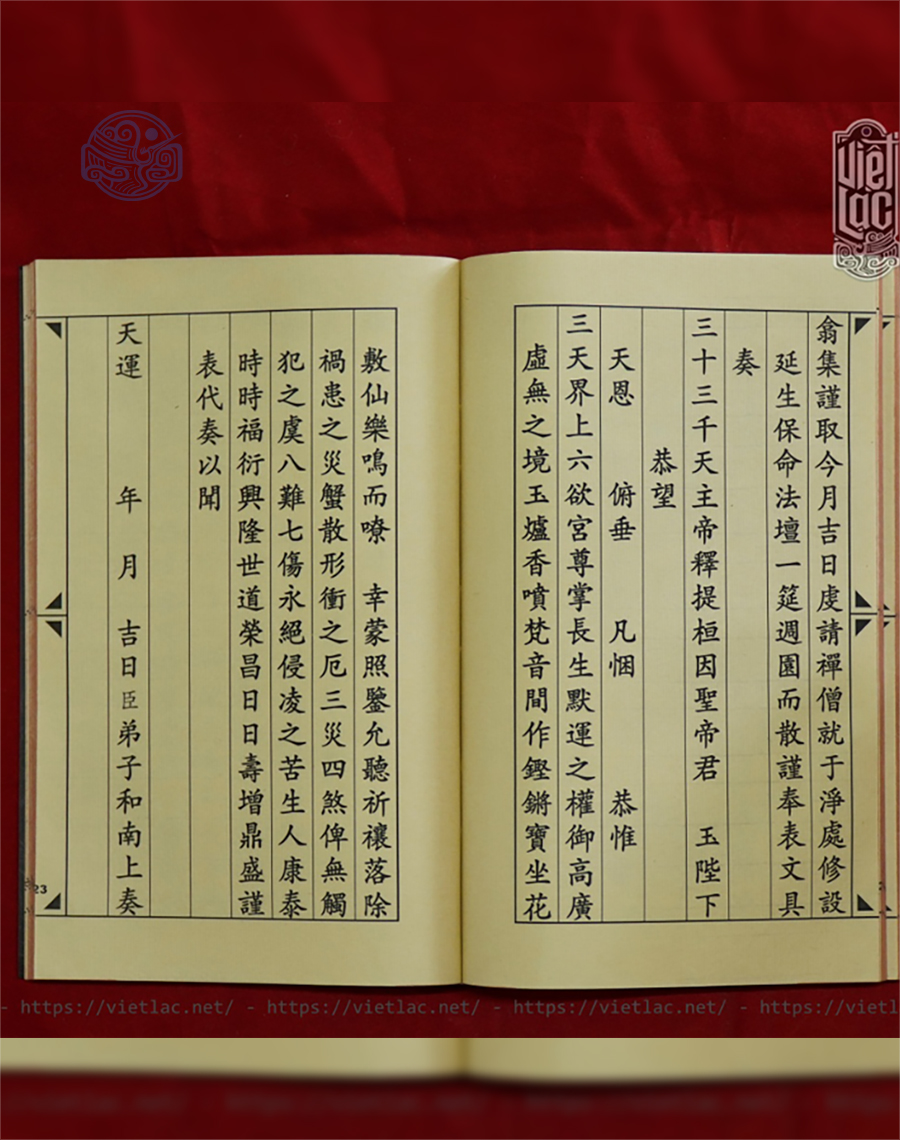 翕集謹取今月吉日虔請禪僧就于淨處修設
延生保命法壇一筵週圍而散謹奉表文具
奏
三十三千天主帝釋提桓因聖帝君 玉陛下
恭望
天恩 俯垂 凡悃 恭惟
三天界上六欲宮尊掌長生默運之權御高廣
虛無之境玉爐香噴梵音間作鏗鏘寶坐花
敷仙樂鳴而嘹 幸蒙照鑒允聽祈禳落除
禍患之災蟹散形衝之厄三災四煞俾無觸
犯之虞八難七傷永絕侵凌之苦生人康泰
時時福衍興隆世道榮昌日日壽增鼎盛謹
表代奏以聞
天運 年 月 吉日臣弟子和南上奏
23
Việt Lạc
- https://vietlac.net/ - https://vietlac.net/ - https://vietlac.net/ - https://vietl